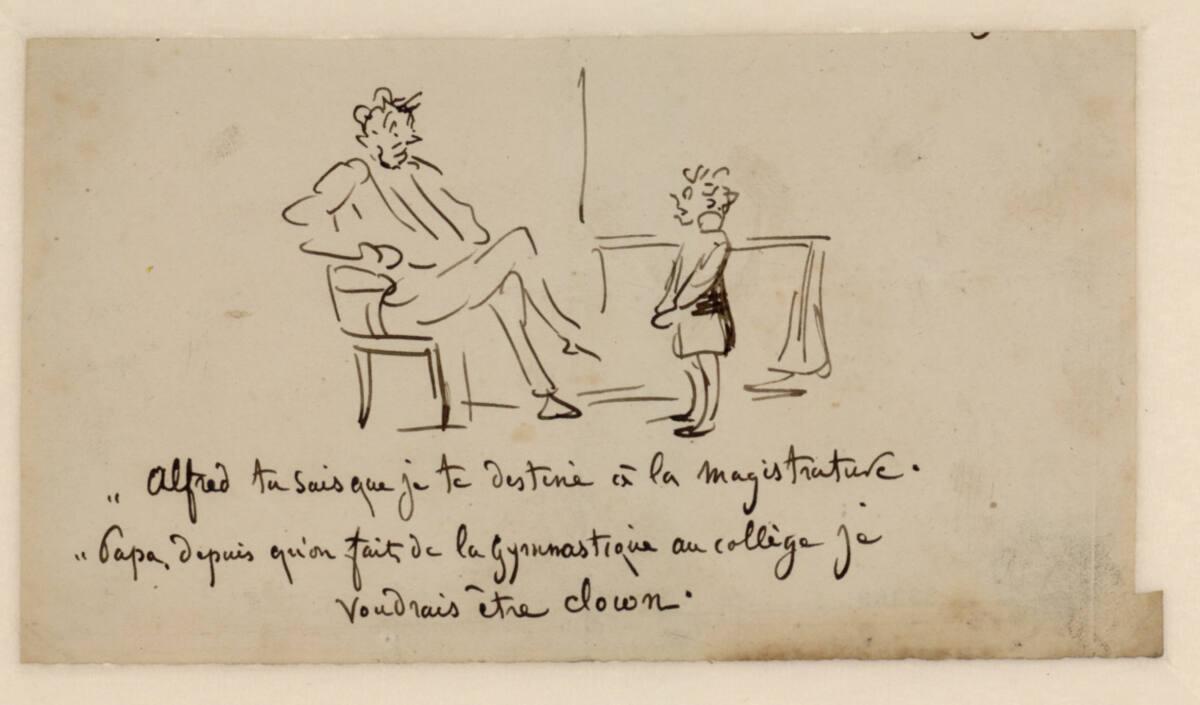 „ Alfred tu sais que je te destine à la magistrature.
„ Papa, depuis qu'on fait de la gymnastique au collège je
voudrais être clown.